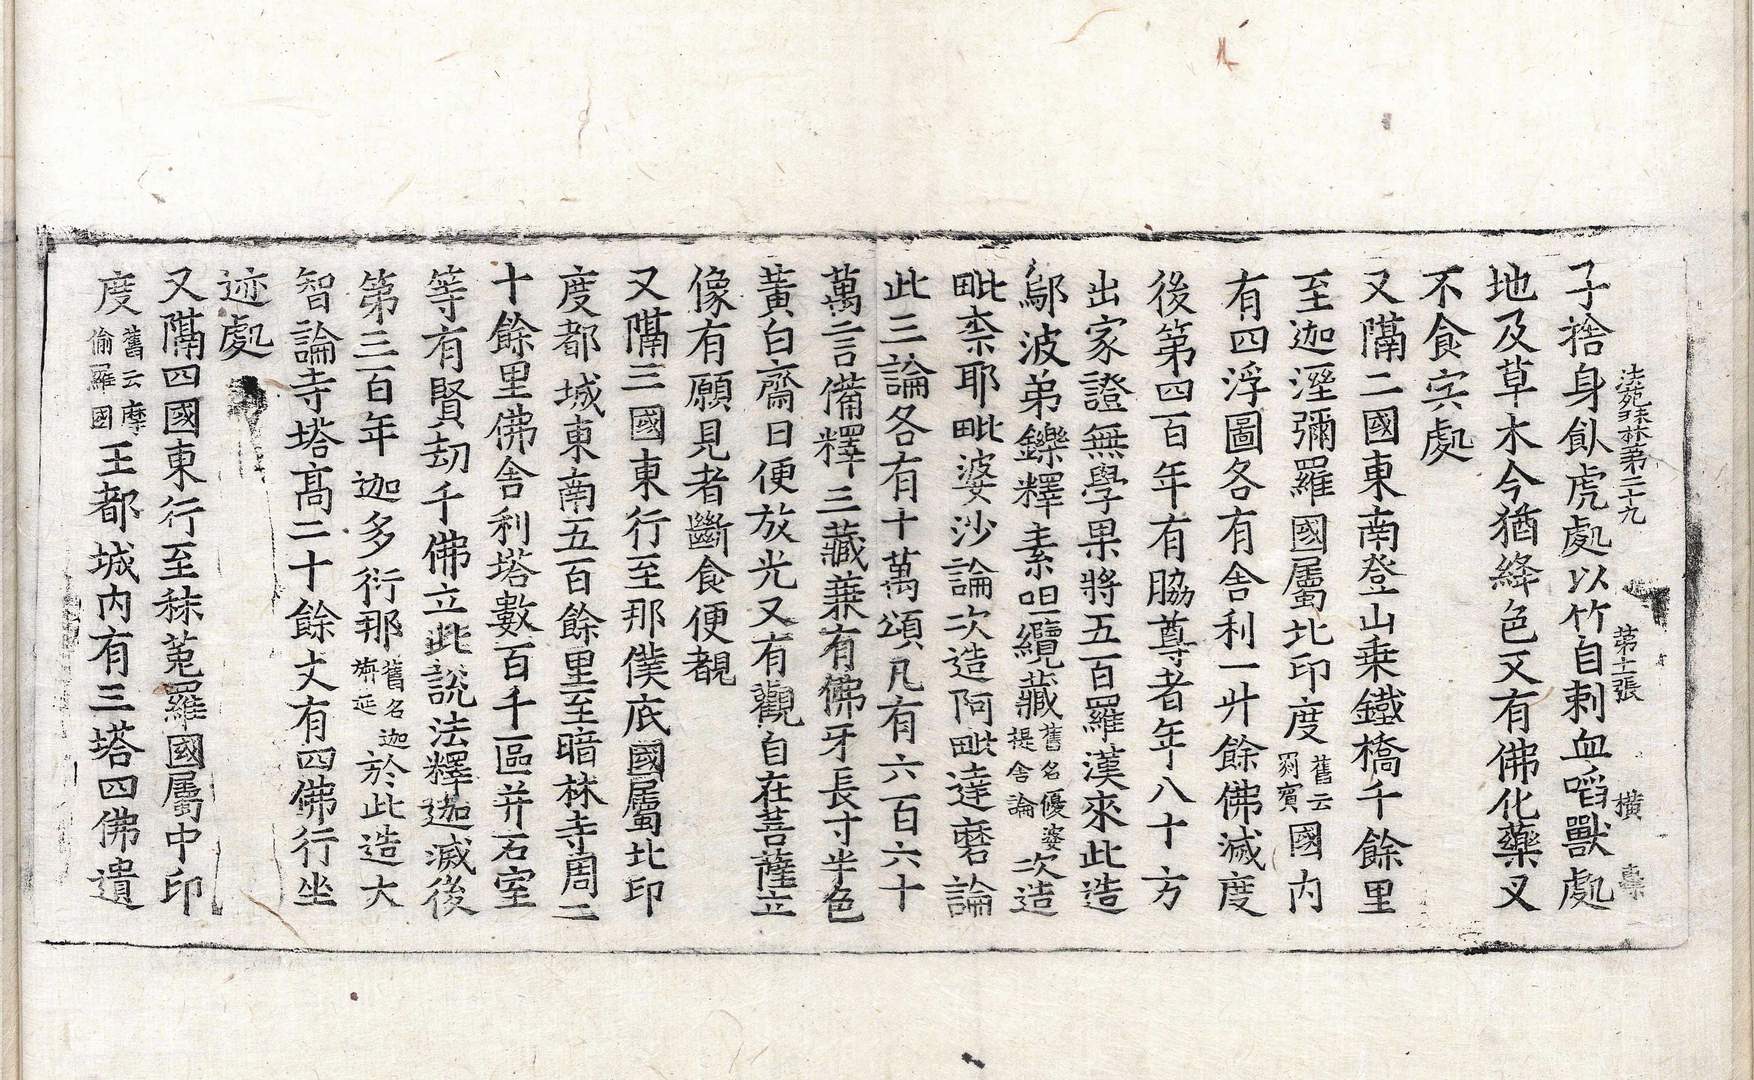 法苑珠林第二十九 第十一張 橫
子捨身飤虎處以竹自刺血㗖獸處
地及草木今猶絳色又有佛化藥叉
不食宍處
又隔二國東南登山乗鐵橋千餘里
至迦溼彌羅國屬北印度舊云罽賓國内
有四浮圖各有舍利一升餘佛滅度
後第四百年有脇尊者年八十方
出家證無學果將五百羅漢來此造
鄔波弟鑠釋素呾纜藏舊名優婆提舍論次造
毗柰耶毗婆沙論次造阿毗達磨論
此三論各有十萬頌凡有六百六十
萬言備釋三藏䒠有佛牙長寸半色
黃白齋日便放光又有觀自在菩薩立
像有願見者斷食便覩
又隔三國東行至那僕底國屬北印
度都城東南五百餘里至暗林寺周二
十餘里佛舍利塔數百千區并石室
等有賢劫千佛立此說法釋迦滅後
第三百年迦多衍那舊名迦旃延於此造大
智論寺塔髙二十餘丈有四佛行坐
迹處
又隔四國東行至秣菟羅國屬中印
度舊云摩偷羅國王都城内有三塔四佛遺